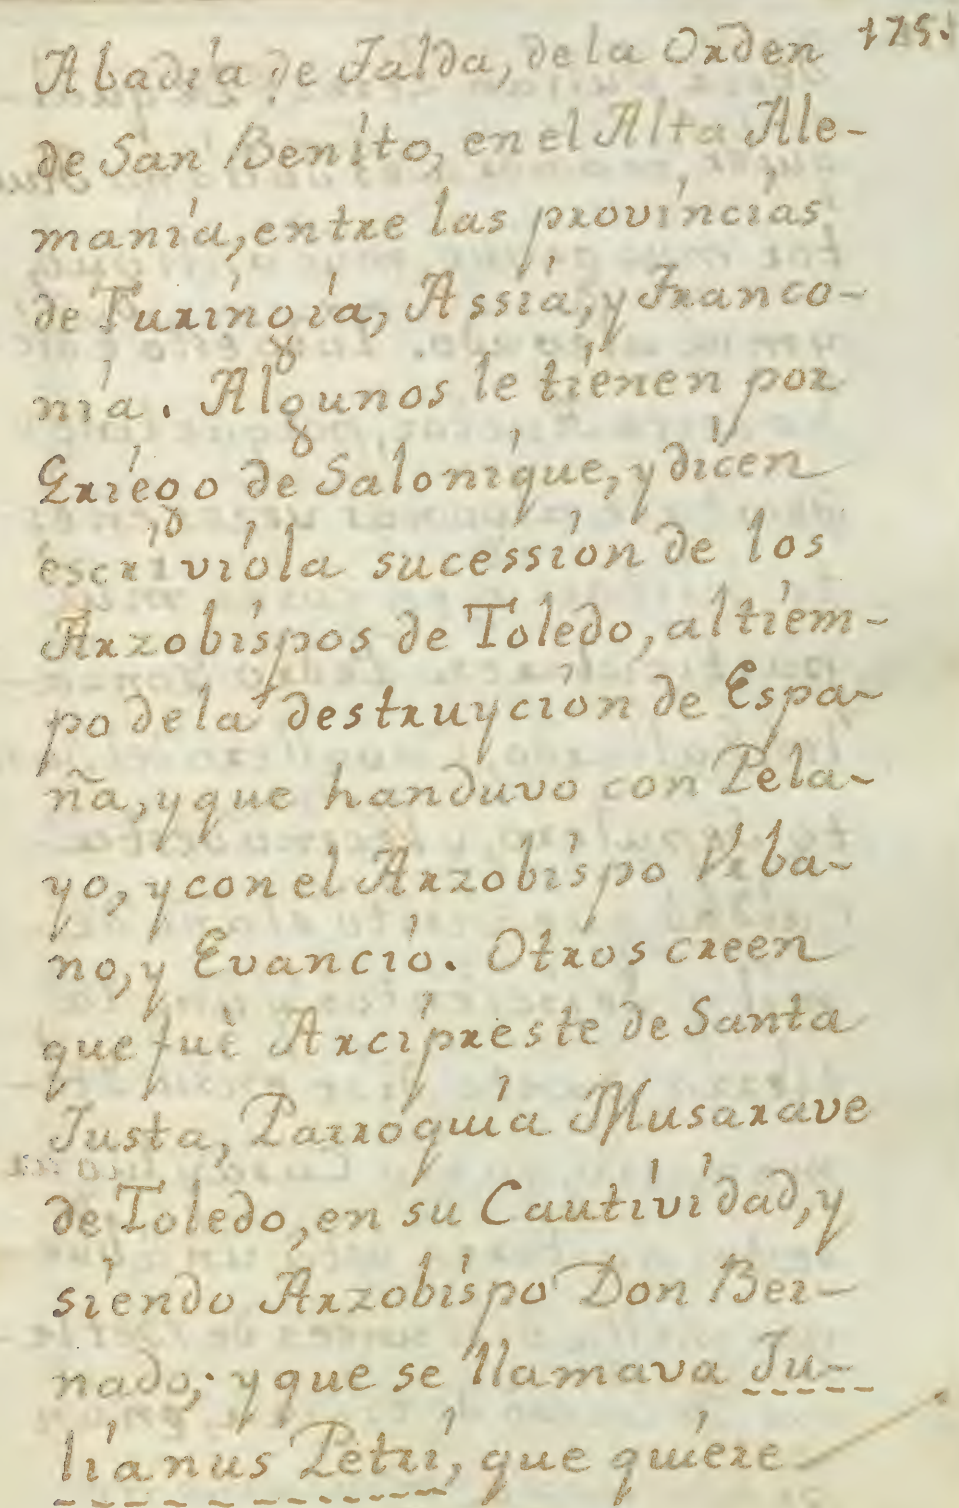 175.
Abadia de Falda, de la Orden
de San Benito, en el Alta Ale-
mania, entre las provincias
de Turingia, Assia, y Franco-
nia. Algunos le tienen por
Griego de Salonique, y dicen
escriviola sucession de los
Arzobispos de Toledo, al tiem-
po de la destruycion de Espa-
ña, y que handuvo con Pela-
yo, y con el Arzobispo Vrba-
no, y Evancio. Otros creen
que fuè Arcipreste de Santa
Justa, Parroquia Musarave
de Toledo, en su Cautividad, y
siendo Arzobispo Don Ber-
nado; y que se llamava Ju-
lianus Petri, que quiere